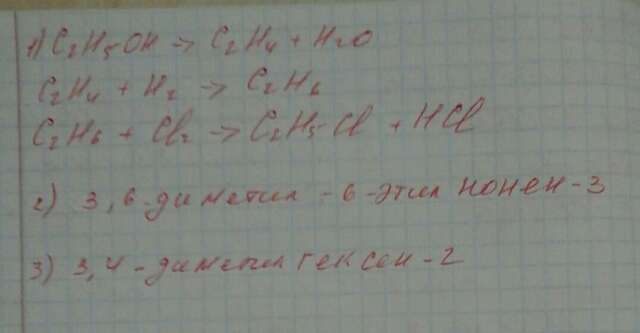 1) C2H5OH → C2H4 + H2O
C2H4 + H2 → C2H6
C2H6 + Cl2 → C2H5Cl + HCl
2) 3,6-диметил-6-этил нонен-3
3) 3,4-диметил гексен-2